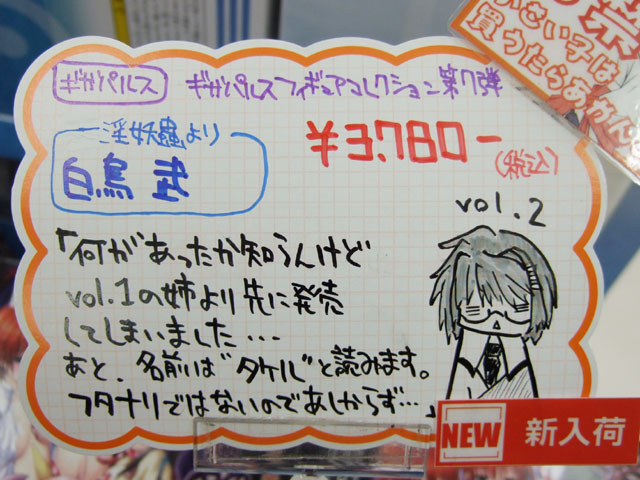 ギガパルス ギガパルスフィギュアコレクション第7弾
淫妖蟲より
白鳥 武
¥3.780-
(税込)
vol.2
「何があったか知らんけど
vol.1の姉より先に発売
してしまいました・・・
あと、名前は"タケル"と読みます。
フタナリではないのであしからず…」
NEW 新入荷
祭
小さい子は
買うたらあかん